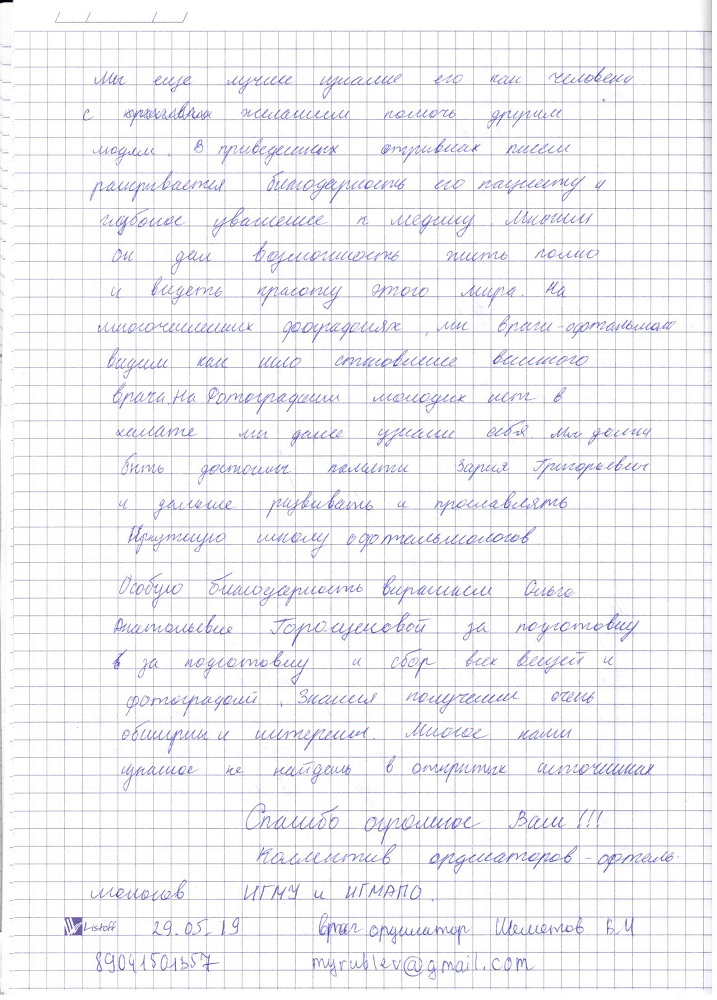 Мы еще лучше узнание его как человека
с желанием помочь другим
людям. В приведенных отрывках писем
раскрывается благодарность его пациенту и
глубокое уважение к медику. Многим
он дал возможность жить полно
и видеть красоту этого мира. На
многочисленных фотографиях, мы врачи-офтальмоло
видим как шло становление великого
врача. На Фотографии молодых лет в
халате мы даже узнали себя. Мы должны
быть достойны памяти Зария Григорьевич
и дальше развивать и прославлять
Иркутскую школу офтальмологов
Особую благодарность выражаем Ольге
Анатольевне за подготовку
за подготовку и сбор всех вещей и
фотографий. Знания получении очень
обширны и интересны. Многое нами
узнаное не найдешь в открытых источниках
Спасибо огромное Вам!!!
Коллектив ординаторов-офталь-
мологов ИГМУ и ИГМАПО.
Listoff 29.05.19 врач ординатор Шеметов В.И
89041501357 myrublev@gmail.com